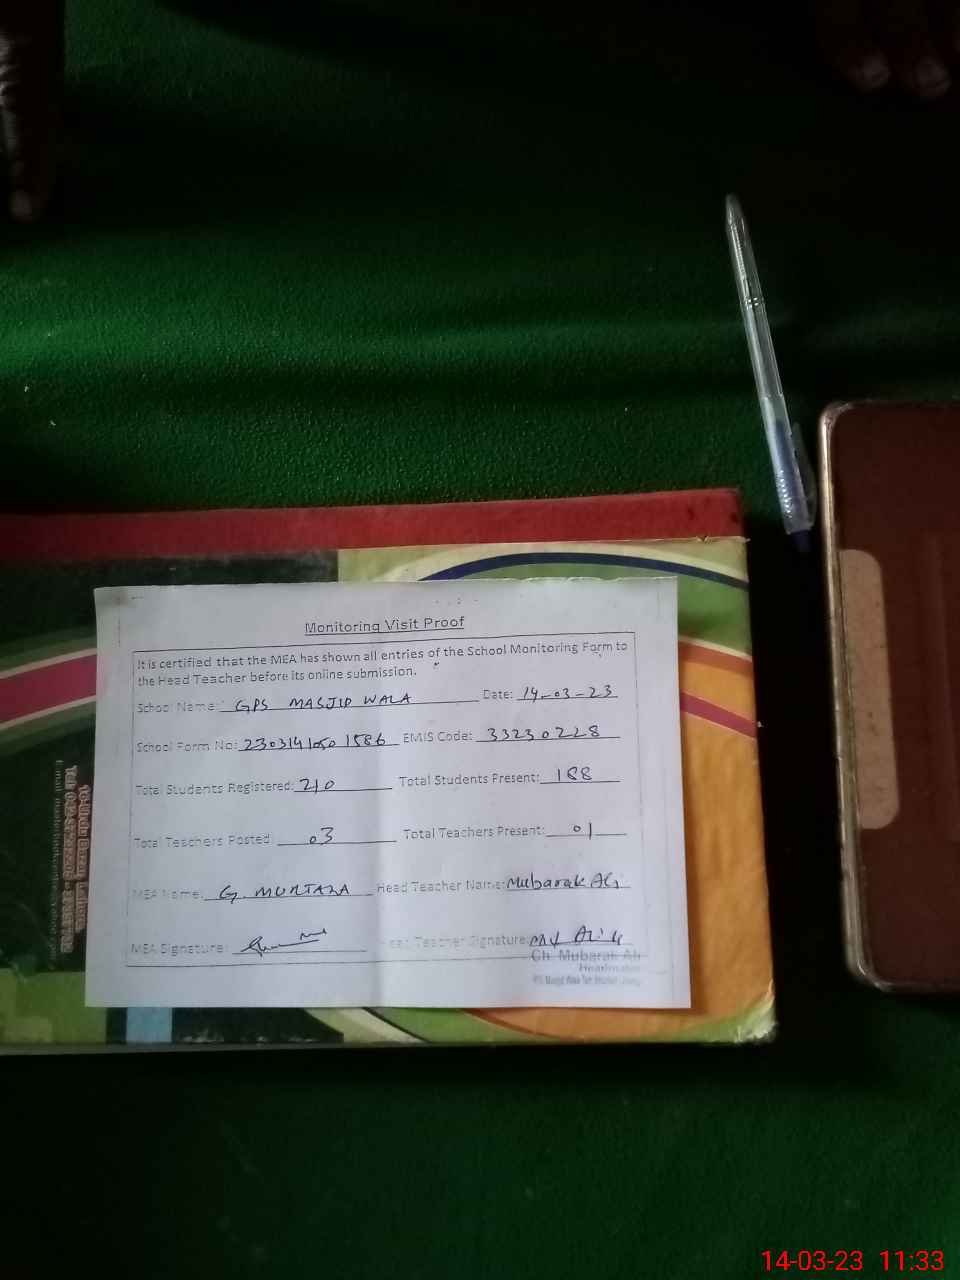 Monitoring Visit Proof
It is certified that the MEA has shown all entries of the School Monitoring Form to
the Head Teacher before its online submission.
School Name: GPS MASJID WALA Date: 14-03-23
School Form No: 2303141050 1586 EMIS Code: 33230228
Total Students Registered: 210 Total Students Present: 188
Total Teachers Posted: 03 Total Teachers Present: 01
MEA Name: G. MURTAZA Head Teacher Name: Mubarak Ali
MEA Signature: Head Teacher Signature:
Ch. Mubarak Ali
Headmaster
14-03-23 11:33